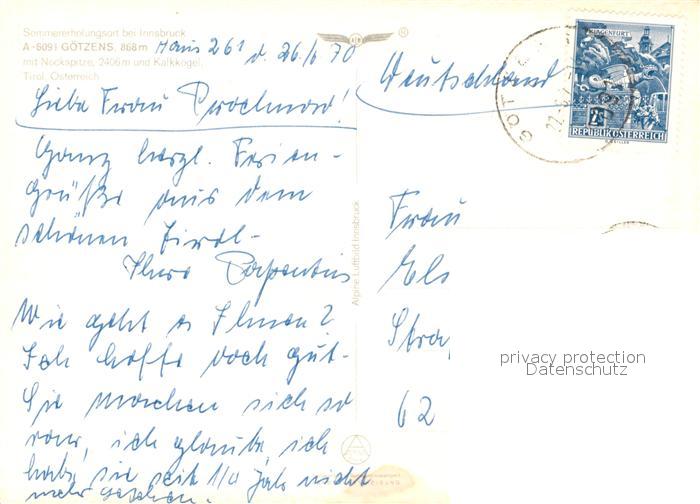 Sommererholungsort bei Innsbruck
A-6091 GÖTZENS, 868m
mit Nockspitze, 2406m und Kalkkögel.
Tirol, Österreich
Haus 261 d. 26./6 70
Liebe Frau
Ganz herzl. Ferien-
grüße aus dem
schönen Tirol-
Ihre Papentin
Wie geht es Ihnen?
Ich hoffe doch gut-
Sie machen sich so
rar, ich glaube, ich
habe sie seit 1/2 Jahr nicht
mehr gesehen.
Alpine Luftbild Innsbruck
Deutschland
KLAGENFURT
2S
REPUBLIK ÖSTERREICH
Frau
Els
Straß
62
privacy protection
Datenschutz